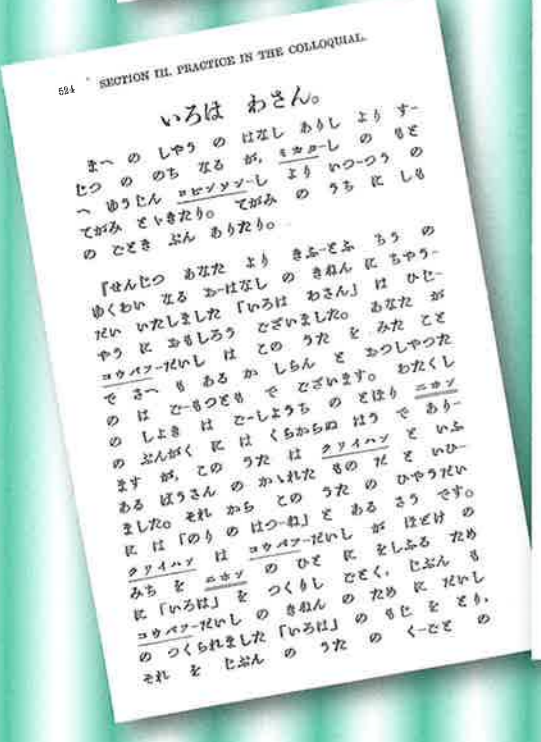 524 SECTION III. PRACTICE IN THE COLLOQUIAL.
いろは わさん。
まへ の しやう の はなし ありし より すー
じつ の のち なる が, ミカターし の もと
へ ゆうじん ロビンソンーし より いつーつう の
てがみ とゞきたり。 てがみ の うち に しも
の ごとき ぶん ありたり。
「せんじつ あなた より きふーとふ ちう の
ゆくわい なる おーはなし の きねん に ちやうー
だい いたしました 「いろは わさん」 は ひじー
やう に おもしろう ございました。 あなた が
コウバフーだいし は この うた を みた こと
で さへ も ある か しらん と おつしやつた
の は ごーもつとも で ございます。 わたくし
の しよき は ごーしようち の とほり ニホン
の ぶんがく に は くらからぬ はう で ありー
ます が, この うた は クリイハン と いふ
ある ばうさん の かゝれた もの だ と いひー
ました。 それ から この うた の ひやうだい
に は 「のり の はつーね」 と ある さう です。
クリイハン は コウバフーだいし が ほとけ の
みち を ニホン の ひと に をしふる ため
に 「いろは」 を つくりし ごとく, じぶん も
コウバフーだいし の きねん の ため に だいし
の つくられました 「いろは」 の もじ を とり,
それ を じぶん の うた の くーごと の